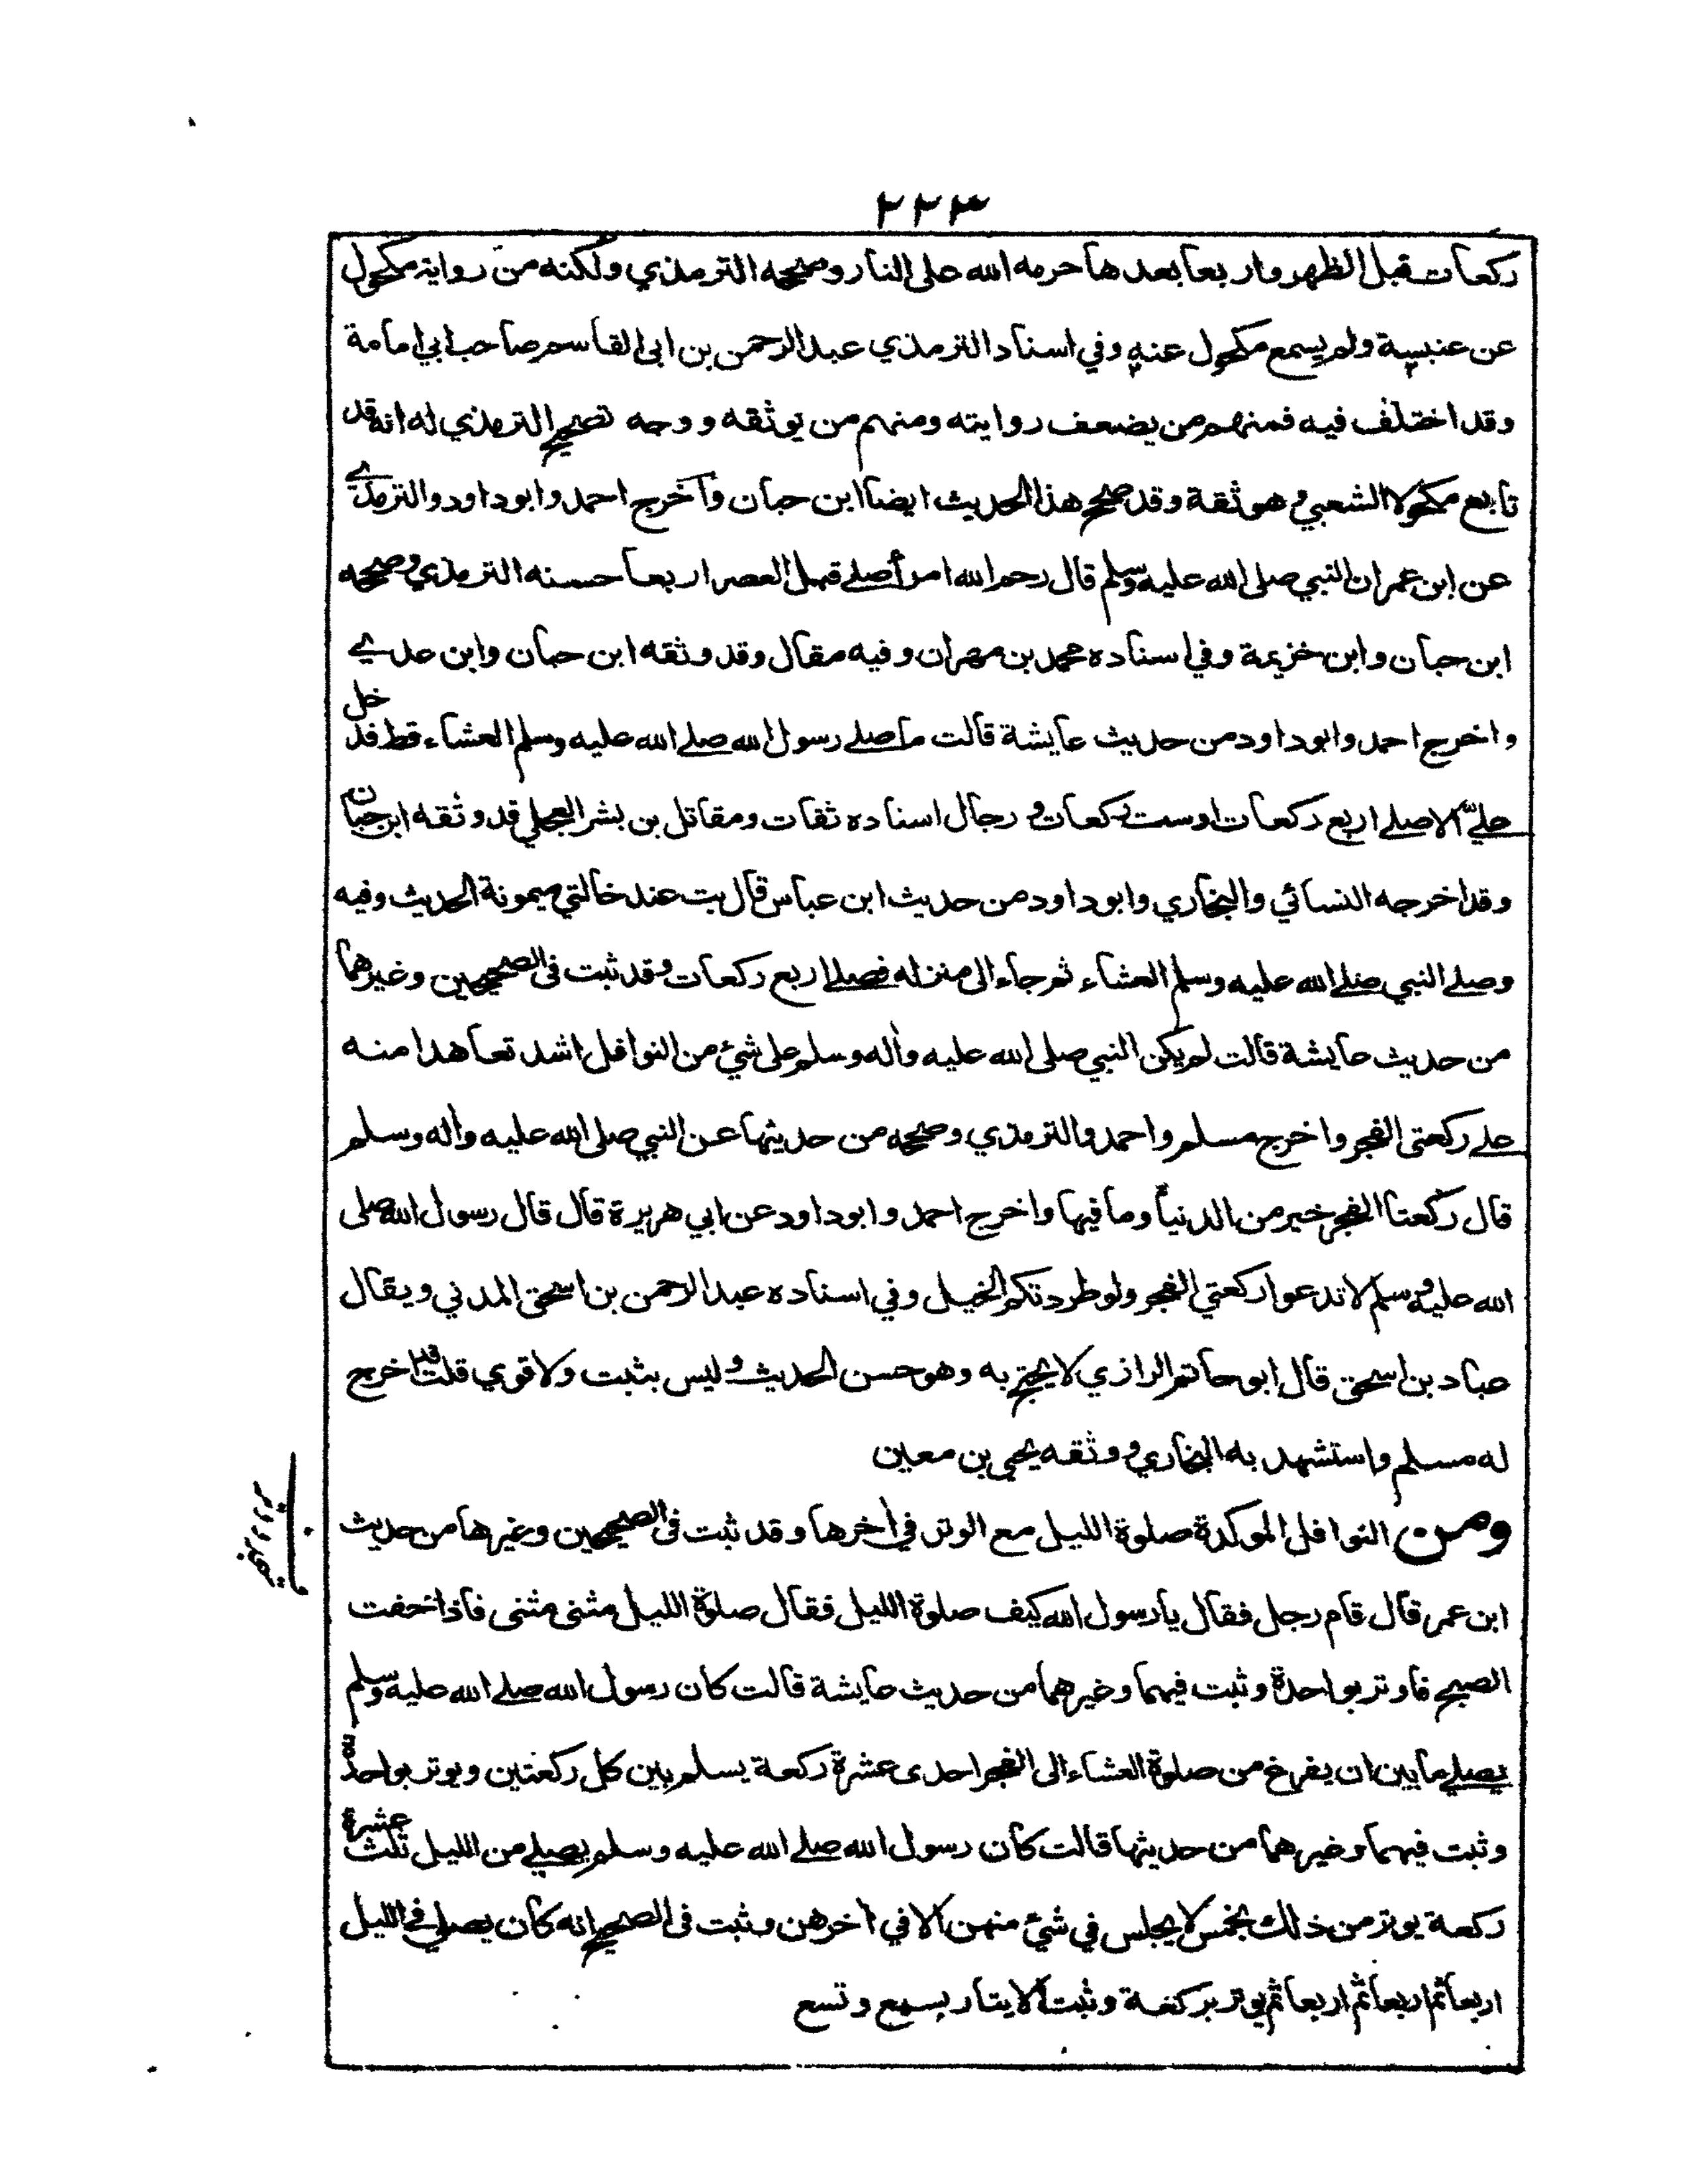 ٢٢٣
ركعات قبل الظهر واربعا بعدها حرمه الله على النار وصححه الترمذي ولكنه من رواية مكحول
عن عنبسة ولم يسمع مكحول عنه وفي اسناد الترمذي عبد الرحمن بن ابى القاسم صاحب ابي امامة
وقد اختلف فيه فمنهم من يضعف روايته ومنهم من يوثقه ووجه تصحيح الترمذي له انه قد
تابع مكحولا الشعبي وهو ثقة وقد صحح هذا الحديث ايضا ابن حبان وأخرج احمد وابوداود والترمذي
عن ابن عمر ان النبي صلى الله عليه وسلم قال رحم الله امرأ صلے قبل العصر اربعا حسنه الترمذي وصححه
ابن حبان وابن خزيمة وفي اسناده محمد بن مهران وفيه مقال وقد وثقه ابن حبان وابن عدي
واخرج احمد وابوداود من حديث عايشة قالت ما صلے رسول الله صلے الله عليه وسلم العشاء قط فدخل
عليّ الا صلے اربع ركعات اوست ركعات ورجال اسناده ثقات ومقاتل بن بشر العجلي قد وثقه ابن حبان
وقد اخرجه النسائي والبخاري وابوداود من حديث ابن عباس قال بت عند خالتي ميمونة الحديث وفيه
وصلے النبي صلے الله عليه وسلم العشاء ثم جاء الى منزله فصلے اربع ركعات وقد ثبت فى الصحيحين وغيرهما
من حديث عايشة قالت لم يكن النبي صلى الله عليه وأله وسلم على شئ من النوافل اشد تعاهدا منه
علے ركعتى الفجر واخرج مسلم واحمد والترمذي وصححه من حديثها عن النبي صلى الله عليه وأله وسلم
قال ركعتا الفجر خير من الدنيا وما فيها واخرج احمد وابوداود عن ابي هريرة قال قال رسول الله صلى
الله عليه وسلم لا تدعوا ركعتي الفجر ولو طردتكم الخيل وفي اسناده عبد الرحمن بن اسحق المدني ويقال
عباد بن اسحق قال ابو حاتم الرازي لا يحتج به وهو حسن الحديث وليس بثبت ولا قوي قلت قد اخرج
له مسلم واستشهد به البخاري ووثقه يحيى بن معين
ومن النوافل الموكدة صلوة الليل مع الوتر في أخرها وقد ثبت فى الصحيحين وغيرها من حديث
ابن عمر قال قام رجل فقال يا رسول الله كيف صلوة الليل فقال صلوة الليل مثنى مثنى فاذا خفت
الصبح فاوتر بواحدة وثبت فيهما وغيرهما من حديث عايشة قالت كان رسول الله صلے الله عليه وسلم
يصلے ما بين ان يفرغ من صلوة العشاء الى الفجر احدى عشرة ركعة يسلم بين كل ركعتين ويوتر بواحدة
وثبت فيهما وغيرهما من حديثها قالت كان رسول الله صلے الله عليه وسلم يصلے من الليل ثلث عشرة
ركعة يوتر من ذلك بخمس لا يجلس في شئ منهن الا في أخرهن وثبت فى الصحيح انه كان يصلي في الليل
اربعا ثم اربعا ثم اربعا ثم يوتر بركعة وثبت الايتار بسبع وتسع